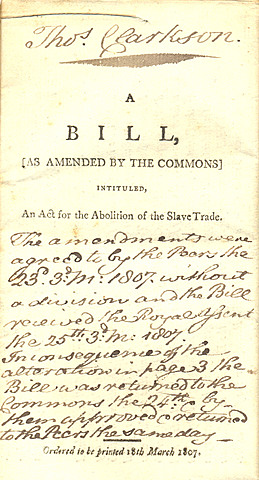 Thos. Clarkson.
A
BILL,
[AS AMENDED BY THE COMMONS]
INTITULED,
An Act for the Abolition of the Slave Trade.
The amendments were
agreed to by the Peers the
23d. 3d. M: 1807. without
a division and the Bill
received the Royal Assent
the 25th. 3d. M: 1807
In consequence of the
alteration in page 3 the
Bill was returned to the
Commons the 24th. & by
them approved & returned
to the Peers the same day —
Ordered to be printed 18th March 1807.